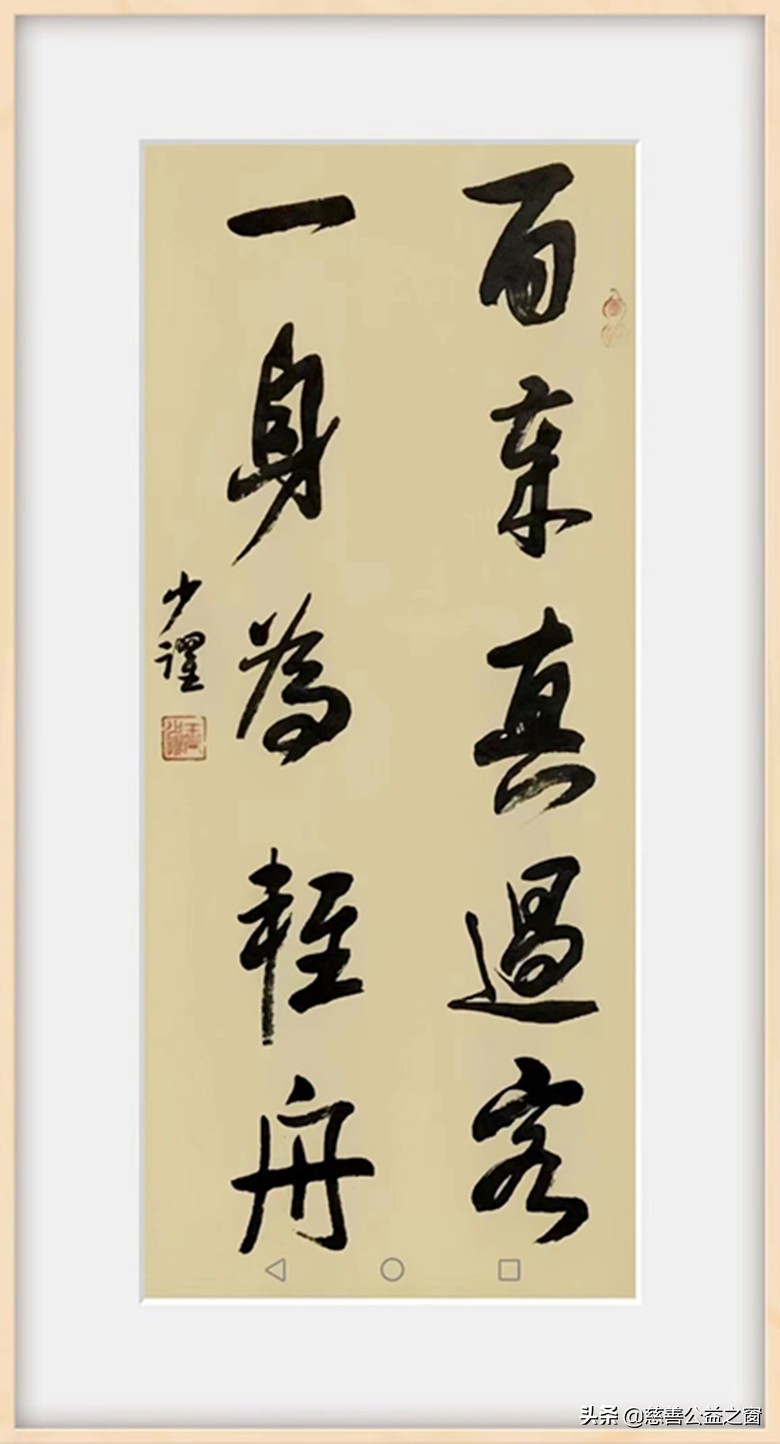 百年真過客
一身為輕舟
少
头条 @慈善公益之窗